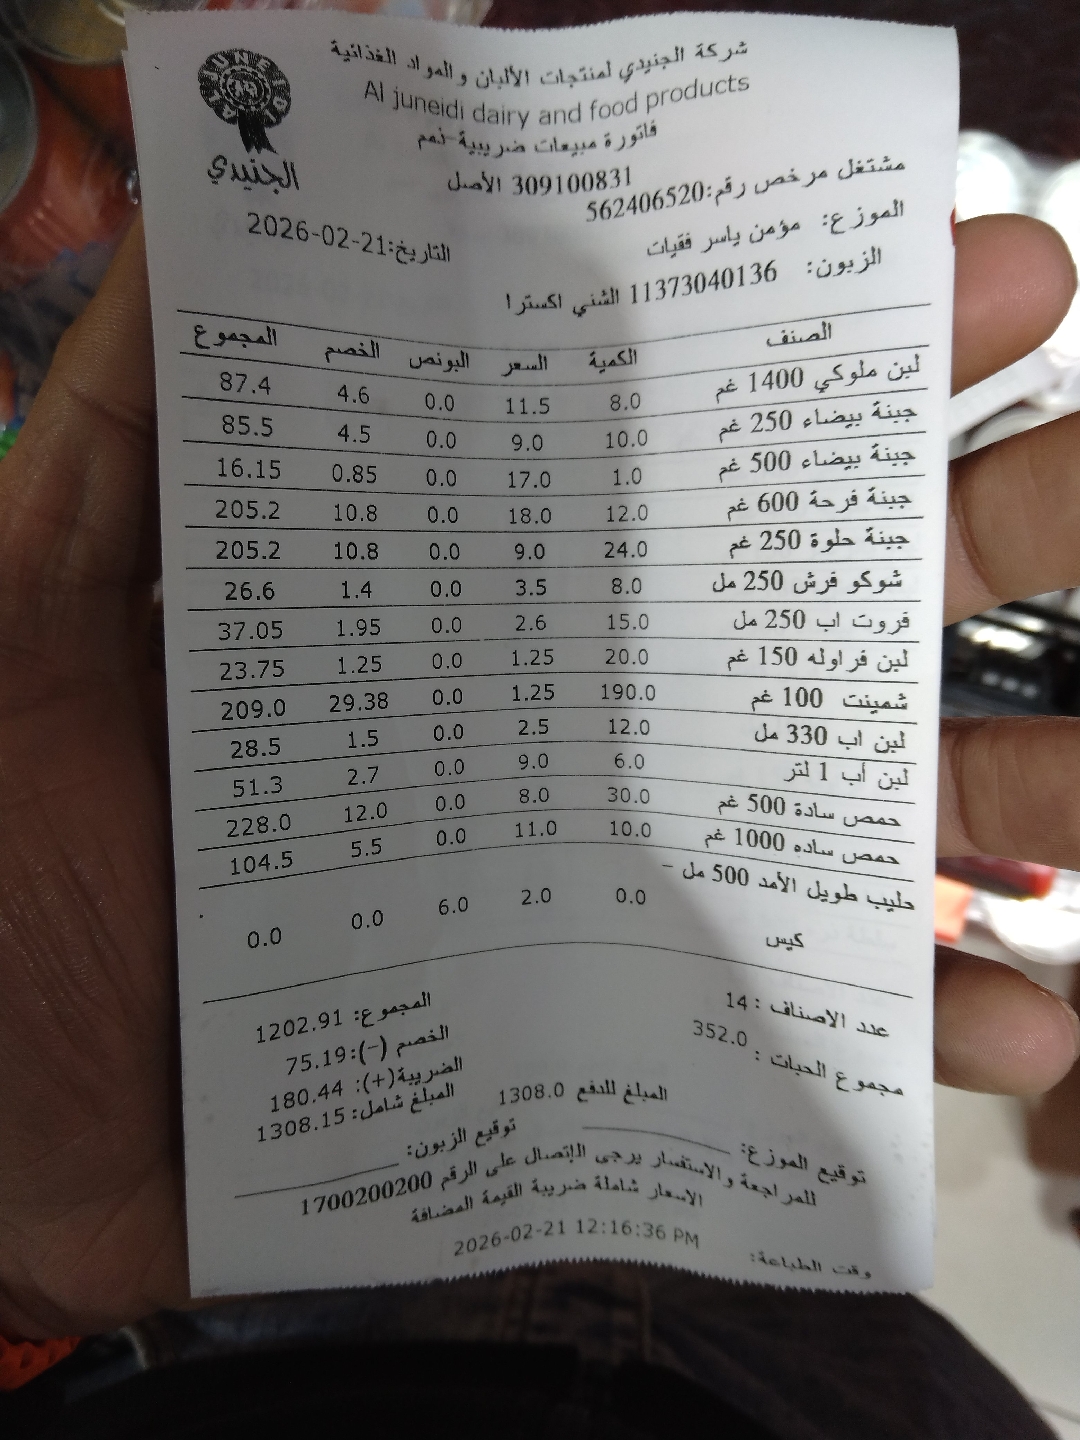 شركة الجنيدي لمنتجات الألبان والمواد الغذائية
Al juneidi dairy and food products
فاتورة مبيعات ضريبية-ذمم
الجنيدي
309100831 الأصل
مشتغل مرخص رقم:562406520
التاريخ:2026-02-21
الموزع: مؤمن ياسر فقيات
الزبون: 11373040136 الشني اكسترا
الصنف الكمية السعر البونص الخصم المجموع
لبن ملوكي 1400 غم 8.0 11.5 0.0 4.6 87.4
جبنة بيضاء 250 غم 10.0 9.0 0.0 4.5 85.5
جبنة بيضاء 500 غم 1.0 17.0 0.0 0.85 16.15
جبنة فرحة 600 غم 12.0 18.0 0.0 10.8 205.2
جبنة حلوة 250 غم 24.0 9.0 0.0 10.8 205.2
شوكو فرش 250 مل 8.0 3.5 0.0 1.4 26.6
فروت اب 250 مل 15.0 2.6 0.0 1.95 37.05
لبن فراوله 150 غم 20.0 1.25 0.0 1.25 23.75
شمينت 100 غم 190.0 1.25 0.0 29.38 209.0
لبن اب 330 مل 12.0 2.5 0.0 1.5 28.5
لبن أب 1 لتر 6.0 9.0 0.0 2.7 51.3
حمص سادة 500 غم 30.0 8.0 0.0 12.0 228.0
حمص ساده 1000 غم 10.0 11.0 0.0 5.5 104.5
حليب طويل الأمد 500 مل -
كيس 0.0 2.0 6.0 0.0 0.0
عدد الاصناف : 14
مجموع الحبات : 352.0
المجموع: 1202.91
الخصم (-):75.19
الضريبة(+): 180.44
المبلغ شامل: 1308.15
المبلغ للدفع 1308.0
توقيع الموزع:
توقيع الزبون:
للمراجعة والاستفسار يرجى الإتصال على الرقم 1700200200
الاسعار شاملة ضريبة القيمة المضافة
وقت الطباعة: 2026-02-21 12:16:36 PM